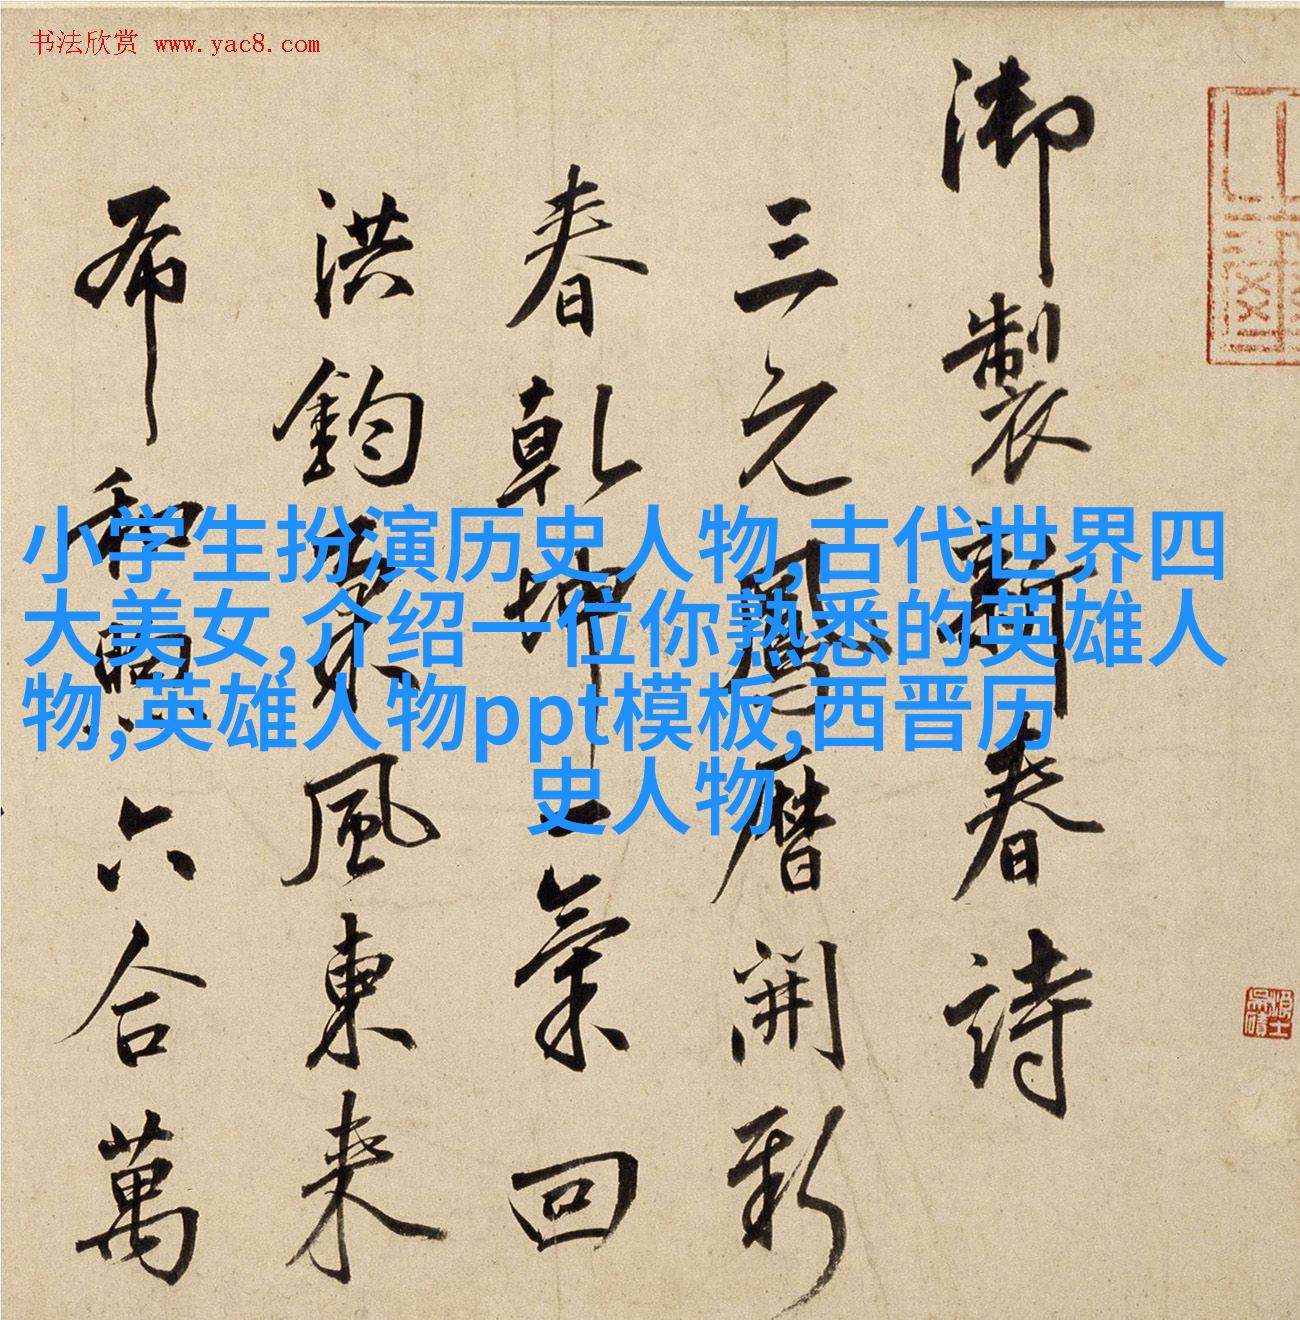 书法欣赏 www.yac8.com
小学生扮演历史人物,古代世界四
大美女,介绍一位你熟悉的英雄人
物,英雄人物ppt模板,西晋历
史人物
御製新春詩
三元鳳曆開新
春乾坤二氣回
洪鈞東風東來
布和闿六合萬